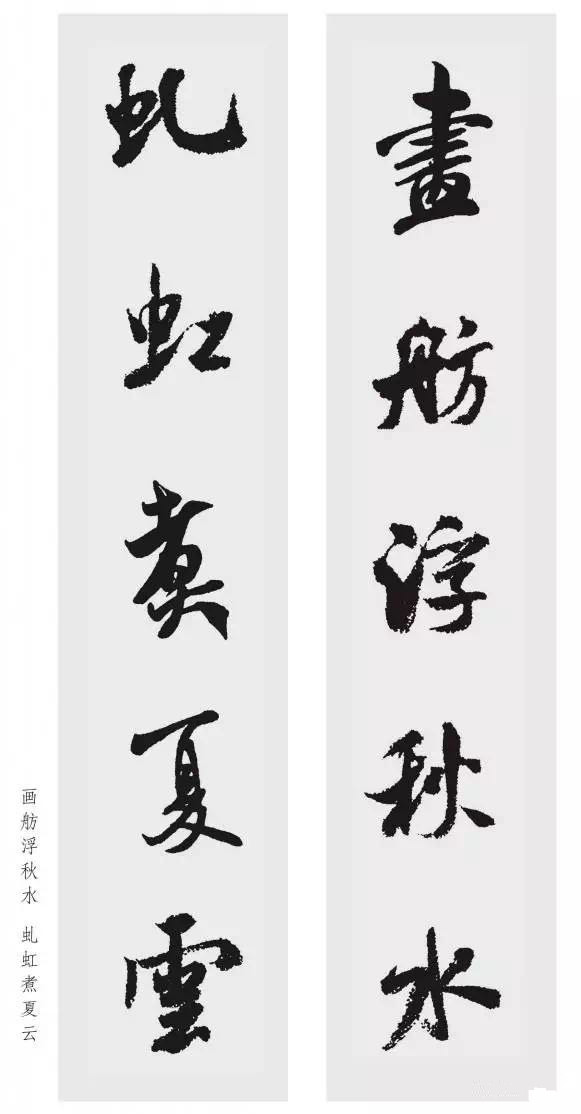 畫舫浮秋水
虬虹煮夏雲
画舫浮秋水 虬虹煮夏云